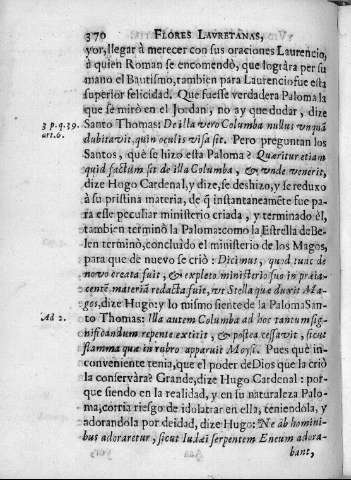 370 FLORES LAVRETANAS,
yor, llegar à merecer con sus oraciones Laurencio,
à quien Roman se encomendò, que lográra per su
mano el Bautismo, tambien para Laurencio fue esta
superior felicidad. Que fuesse verdadera Paloma la
que se mirò en el Jordan, no ay que dudar, dize
3 p. q. 39. Santo Thomas: De illa vero Columba nullus unquã
art. 6. dubitavit, quin oculis visa sit. Pero preguntan los
Santos, què se hizo esta Paloma? Quæritur etiam
quid factum sit de illa Columba, & unde venerit,
dize Hugo Cardenal, y dize, se deshizo, y se reduxo
à su pristina materia, de q̃ instantaneamẽte fue pa-
ra este peculiar ministerio criada, y terminado èl,
tambien terminò la Paloma: como la Estrella de Be-
len terminò, concluìdo el ministerio de los Magos,
para que de nuevo se criò: Dicimus, quod tunc de
novo creata fuit, & expleto ministerio suo in præia-
centẽ materiã redacta fuit, vt Stella quæ duxit Ma-
gos, dize Hugo: y lo mismo siente de la Paloma San-
Ad 2. to Thomas: Illa autem Columba ad hoc tantum sig-
nificandum repente extitit, & postea cessavit, sicut
flamma quæ in rubro apparuit Moysi. Pues què in-
conveniente tenia, que el poder de Dios que la criò
la conservàra? Grande, dize Hugo Cardenal: por-
que siendo en la realidad, y en su naturaleza Palo-
ma, corria riesgo de idolatrar en ella, teniendola, y
adorandola por deidad, dize Hugo: Ne ab homini-
bus adoraretur, sicut Iudæi serpentem Eneum adora-
bant,